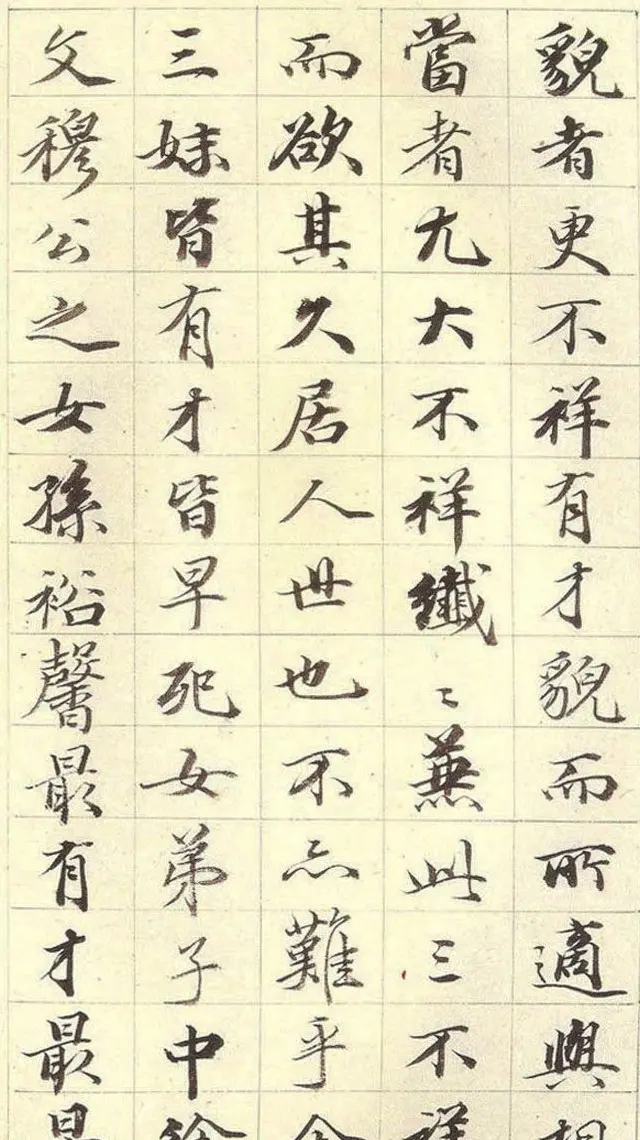 貌者更不祥有才貌而所適與相
當者尤大不祥纖〻兼此三不祥
而欲其久居人世也不亦難乎余
三妹皆有才皆早死女弟子中徐
文穆公之女孫裕馨最有才最早